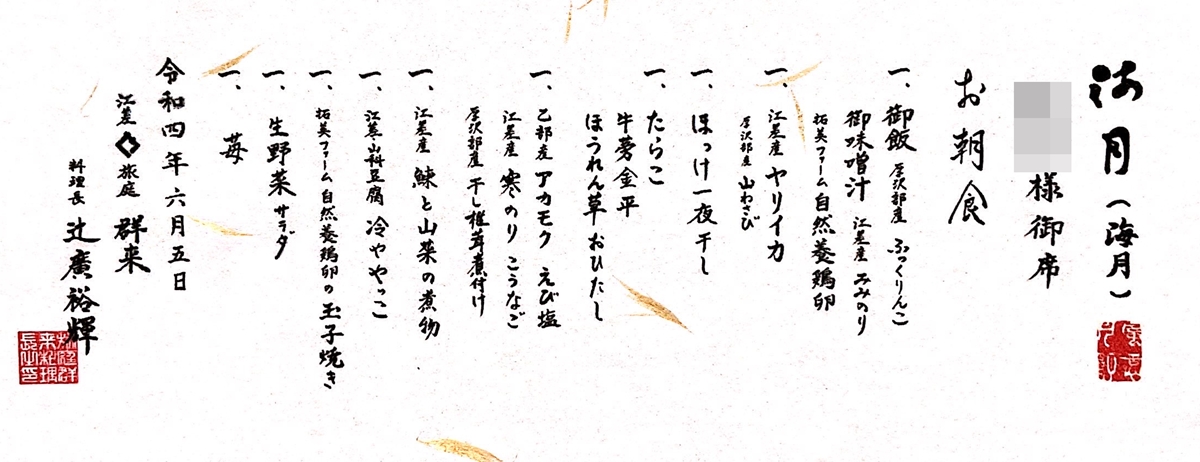 江月（海月）
様御席
お朝食
一、御飯 厚沢部産 ふっくりんこ
御味噌汁 江差産 みみのり
拓美ファーム 自然養鶏卵
一、江差産 ヤリイカ
厚沢部産 山わさび
一、ほっけ一夜干し
一、たらこ
牛蒡金平
ほうれん草おひたし
一、乙部産 アカモク えび塩
江差産 寒のり こうなご
厚沢部産 干し椎茸煮付け
一、江差産 鰊と山菜の煮物
一、江差山科豆腐 冷ややっこ
一、拓美ファーム 自然養鶏卵の玉子焼き
一、生野菜サラダ
一、苺
令和四年六月五日
江差 旅庭 群来
料理長 辻廣裕輝